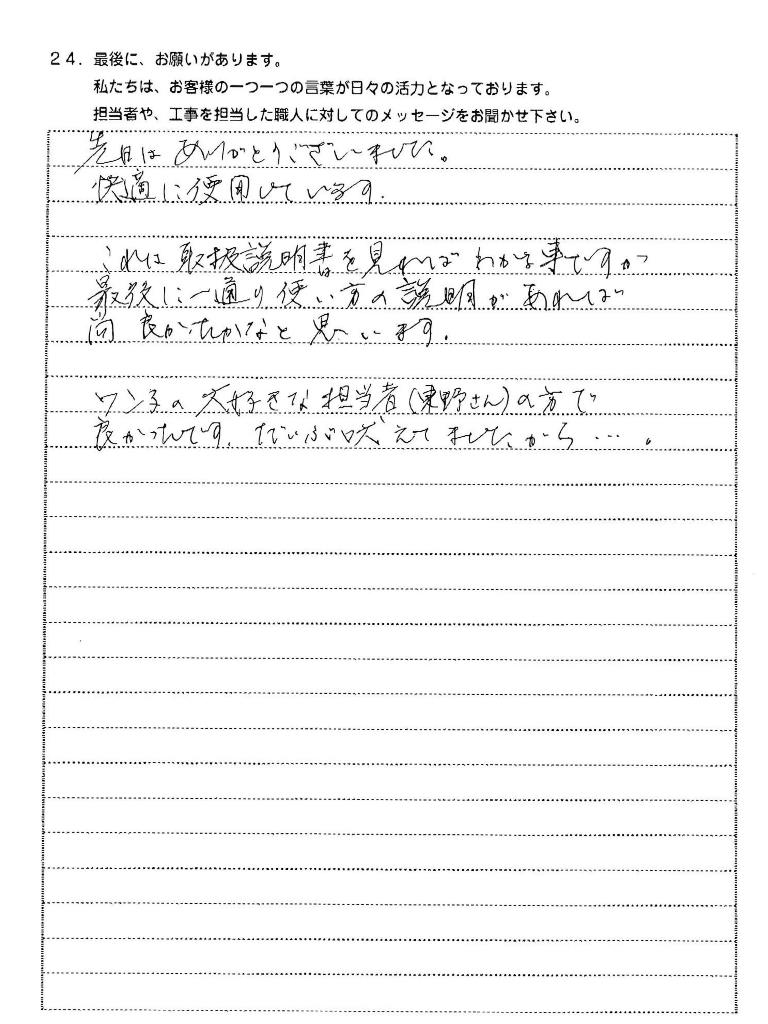 24. 最後に、お願いがあります。
私たちは、お客様の一つ一つの言葉が日々の活力となっております。
担当者や、工事を担当した職人に対してのメッセージをお聞かせ下さい。
先日は ありがとうございました。
快適に使用しています.
これは 取扱説明書を見れば わかる事ですが
最後に一通り使い方の説明があれば
尚 良かったかなと 思います.
ワン子の 大好きな 担当者(東野さん)の方で
良かったです. だいぶ吠えてましたから…。